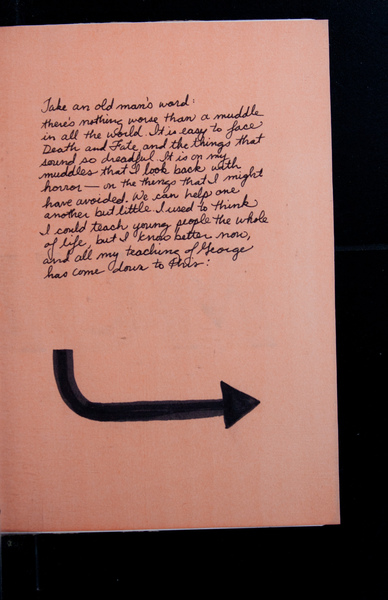 Take an old man's word:
there's nothing worse than a muddle
in all the world. It is easy to face
Death and Fate, and the things that
sound so dreadful. It is on my
muddles that I look back with
horror — on the things that I might
have avoided. We can help one
another but little. I used to think
I could teach young people the whole
of life, but I know better now,
and all my teaching of George
has come down to this: